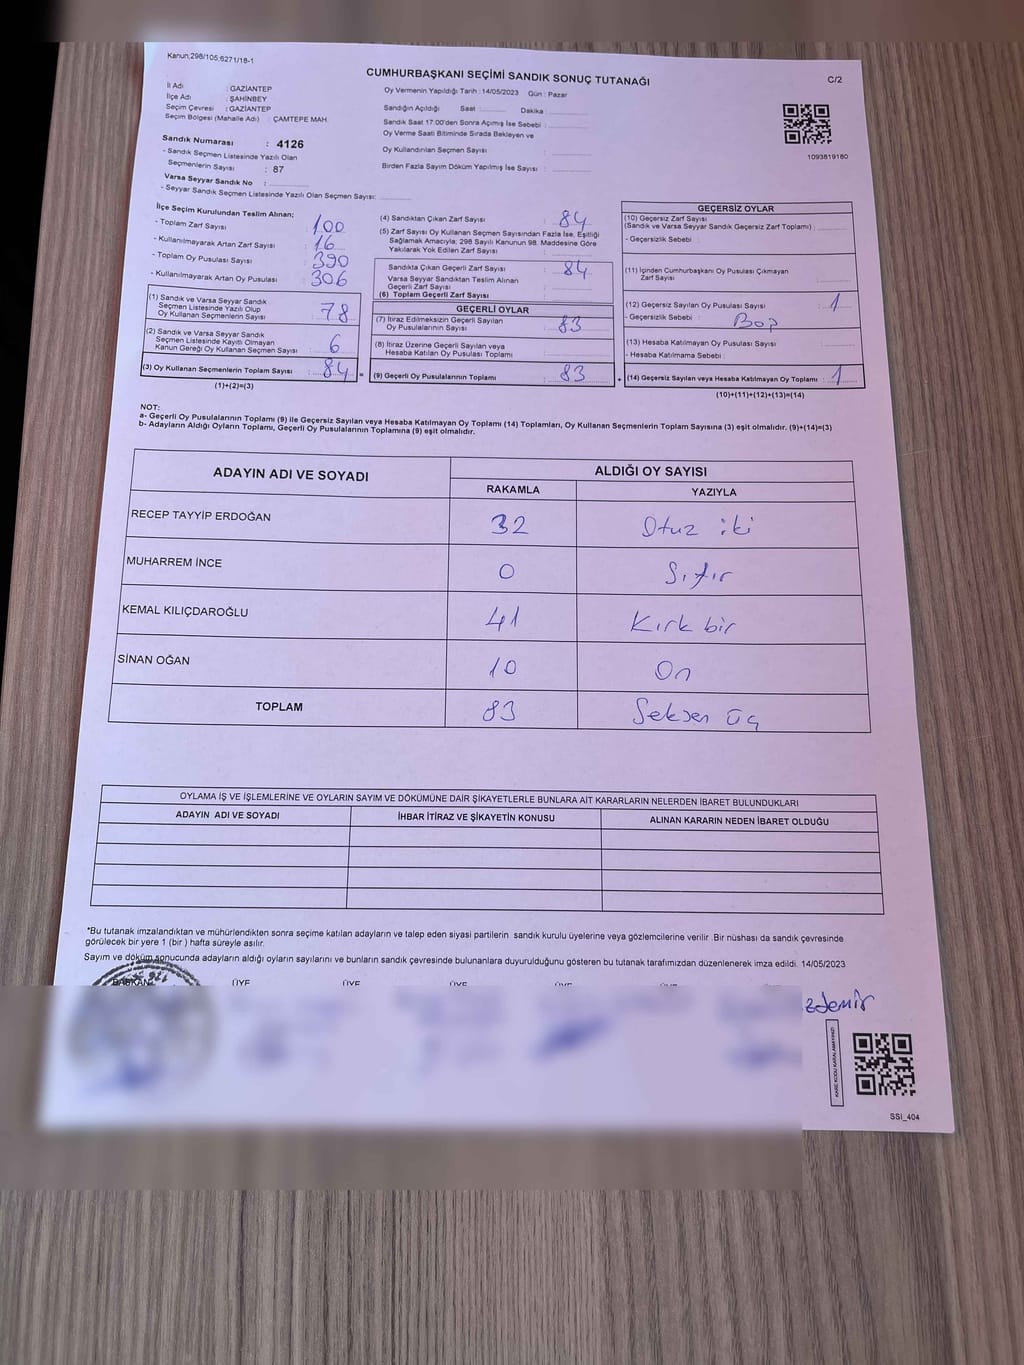 Kanun,298/105,6271/18-1
CUMHURBAŞKANI SEÇİMİ SANDIK SONUÇ TUTANAĞI
C/2
İl Adı : GAZİANTEP
İlçe Adı : ŞAHİNBEY
Seçim Çevresi : GAZİANTEP
Seçim Bölgesi (Mahalle Adı) : ÇAMTEPE MAH
Sandık Numarası : 4126
- Sandık Seçmen Listesinde Yazılı Olan
Seçmenlerin Sayısı : 87
Varsa Seyyar Sandık No :
- Seyyar Sandık Seçmen Listesinde Yazılı Olan Seçmen Sayısı:
Oy Vermenin Yapıldığı Tarih : 14/05/2023 Gün : Pazar
Sandığın Açıldığı Saat : Dakika :
Sandık Saat 17:00'den Sonra Açımış İse Sebebi :
Oy Verme Saati Bitiminde Sırada Bekleyen ve
Oy Kullandırılan Seçmen Sayısı :
Birden Fazla Sayım Döküm Yapılmış İse Sayısı :
1093819180
İlçe Seçim Kurulundan Teslim Alınan:
- Toplam Zarf Sayısı : 100
- Kullanılmayarak Artan Zarf Sayısı : 16
- Toplam Oy Pusulası Sayısı : 390
- Kullanılmayarak Artan Oy Pusulası : 306
(1) Sandık ve Varsa Seyyar Sandık
Seçmen Listesinde Yazılı Olup
Oy Kullanan Seçmenlerin Sayısı : 78
(2) Sandık ve Varsa Seyyar Sandık
Seçmen Listesinde Kayıtlı Olmayan
Kanun Gereği Oy Kullanan Seçmen Sayısı : 6
(3) Oy Kullanan Seçmenlerin Toplam Sayısı : 84 =
(1)+(2)=(3)
(4) Sandıktan Çıkan Zarf Sayısı : 84
(5) Zarf Sayısı Oy Kullanan Seçmen Sayısından Fazla İse, Eşitliği
Sağlamak Amacıyla; 298 Sayılı Kanunun 98. Maddesine Göre
Yakılarak Yok Edilen Zarf Sayısı :
Sandıkta Çıkan Geçerli Zarf Sayısı : 84
Varsa Seyyar Sandıktan Teslim Alınan
Geçerli Zarf Sayısı :
(6) Toplam Geçerli Zarf Sayısı :
GEÇERLİ OYLAR
(7) İtiraz Edilmeksizin Geçerli Sayılan
Oy Pusulalarının Sayısı : 83
(8) İtiraz Üzerine Geçerli Sayılan veya
Hesaba Katılan Oy Pusulası Toplamı :
(9) Geçerli Oy Pusulalarının Toplamı : 83 +
GEÇERSİZ OYLAR
(10) Geçersiz Zarf Sayısı
(Sandık ve Varsa Seyyar Sandık Geçersiz Zarf Toplamı) :
- Geçersizlik Sebebi :
(11) İçinden Cumhurbaşkanı Oy Pusulası Çıkmayan
Zarf Sayısı :
(12) Geçersiz Sayılan Oy Pusulası Sayısı : 1
- Geçersizlik Sebebi : Boş
(13) Hesaba Katılmayan Oy Pusulası Sayısı :
- Hesaba Katılmama Sebebi :
(14) Geçersiz Sayılan veya Hesaba Katılmayan Oy Toplamı : 1
(10)+(11)+(12)+(13)=(14)
NOT:
a- Geçerli Oy Pusulalarının Toplamı (9) ile Geçersiz Sayılan veya Hesaba Katılmayan Oy Toplamı (14) Toplamları, Oy Kullanan Seçmenlerin Toplam Sayısına (3) eşit olmalıdır. (9)+(14)=(3)
b- Adayların Aldığı Oyların Toplamı, Geçerli Oy Pusulalarının Toplamına (9) eşit olmalıdır.
ADAYIN ADI VE SOYADI ALDIĞI OY SAYISI
RAKAMLA YAZIYLA
RECEP TAYYİP ERDOĞAN 32 Otuz iki
MUHARREM İNCE 0 Sıfır
KEMAL KILIÇDAROĞLU 41 Kırk bir
SİNAN OĞAN 10 On
TOPLAM 83 Seksen üç
OYLAMA İŞ VE İŞLEMLERİNE VE OYLARIN SAYIM VE DÖKÜMÜNE DAİR ŞİKAYETLERLE BUNLARA AİT KARARLARIN NELERDEN İBARET BULUNDUKLARI
ADAYIN ADI VE SOYADI İHBAR İTİRAZ VE ŞİKAYETİN KONUSU ALINAN KARARIN NEDEN İBARET OLDUĞU
*Bu tutanak imzalandıktan ve mühürlendikten sonra seçime katılan adayların ve talep eden siyasi partilerin sandık kurulu üyelerine veya gözlemcilerine verilir .Bir nüshası da sandık çevresinde
görülecek bir yere 1 (bir ) hafta süreyle asılır.
Sayım ve döküm sonucunda adayların aldığı oyların sayılarını ve bunların sandık çevresinde bulunanlara duyurulduğunu gösteren bu tutanak tarafımızdan düzenlenerek imza edildi. 14/05/2023
BAŞKAN ÜYE ÜYE ÜYE ÜYE ÜYE ÜYE
zdemir
SSI_404